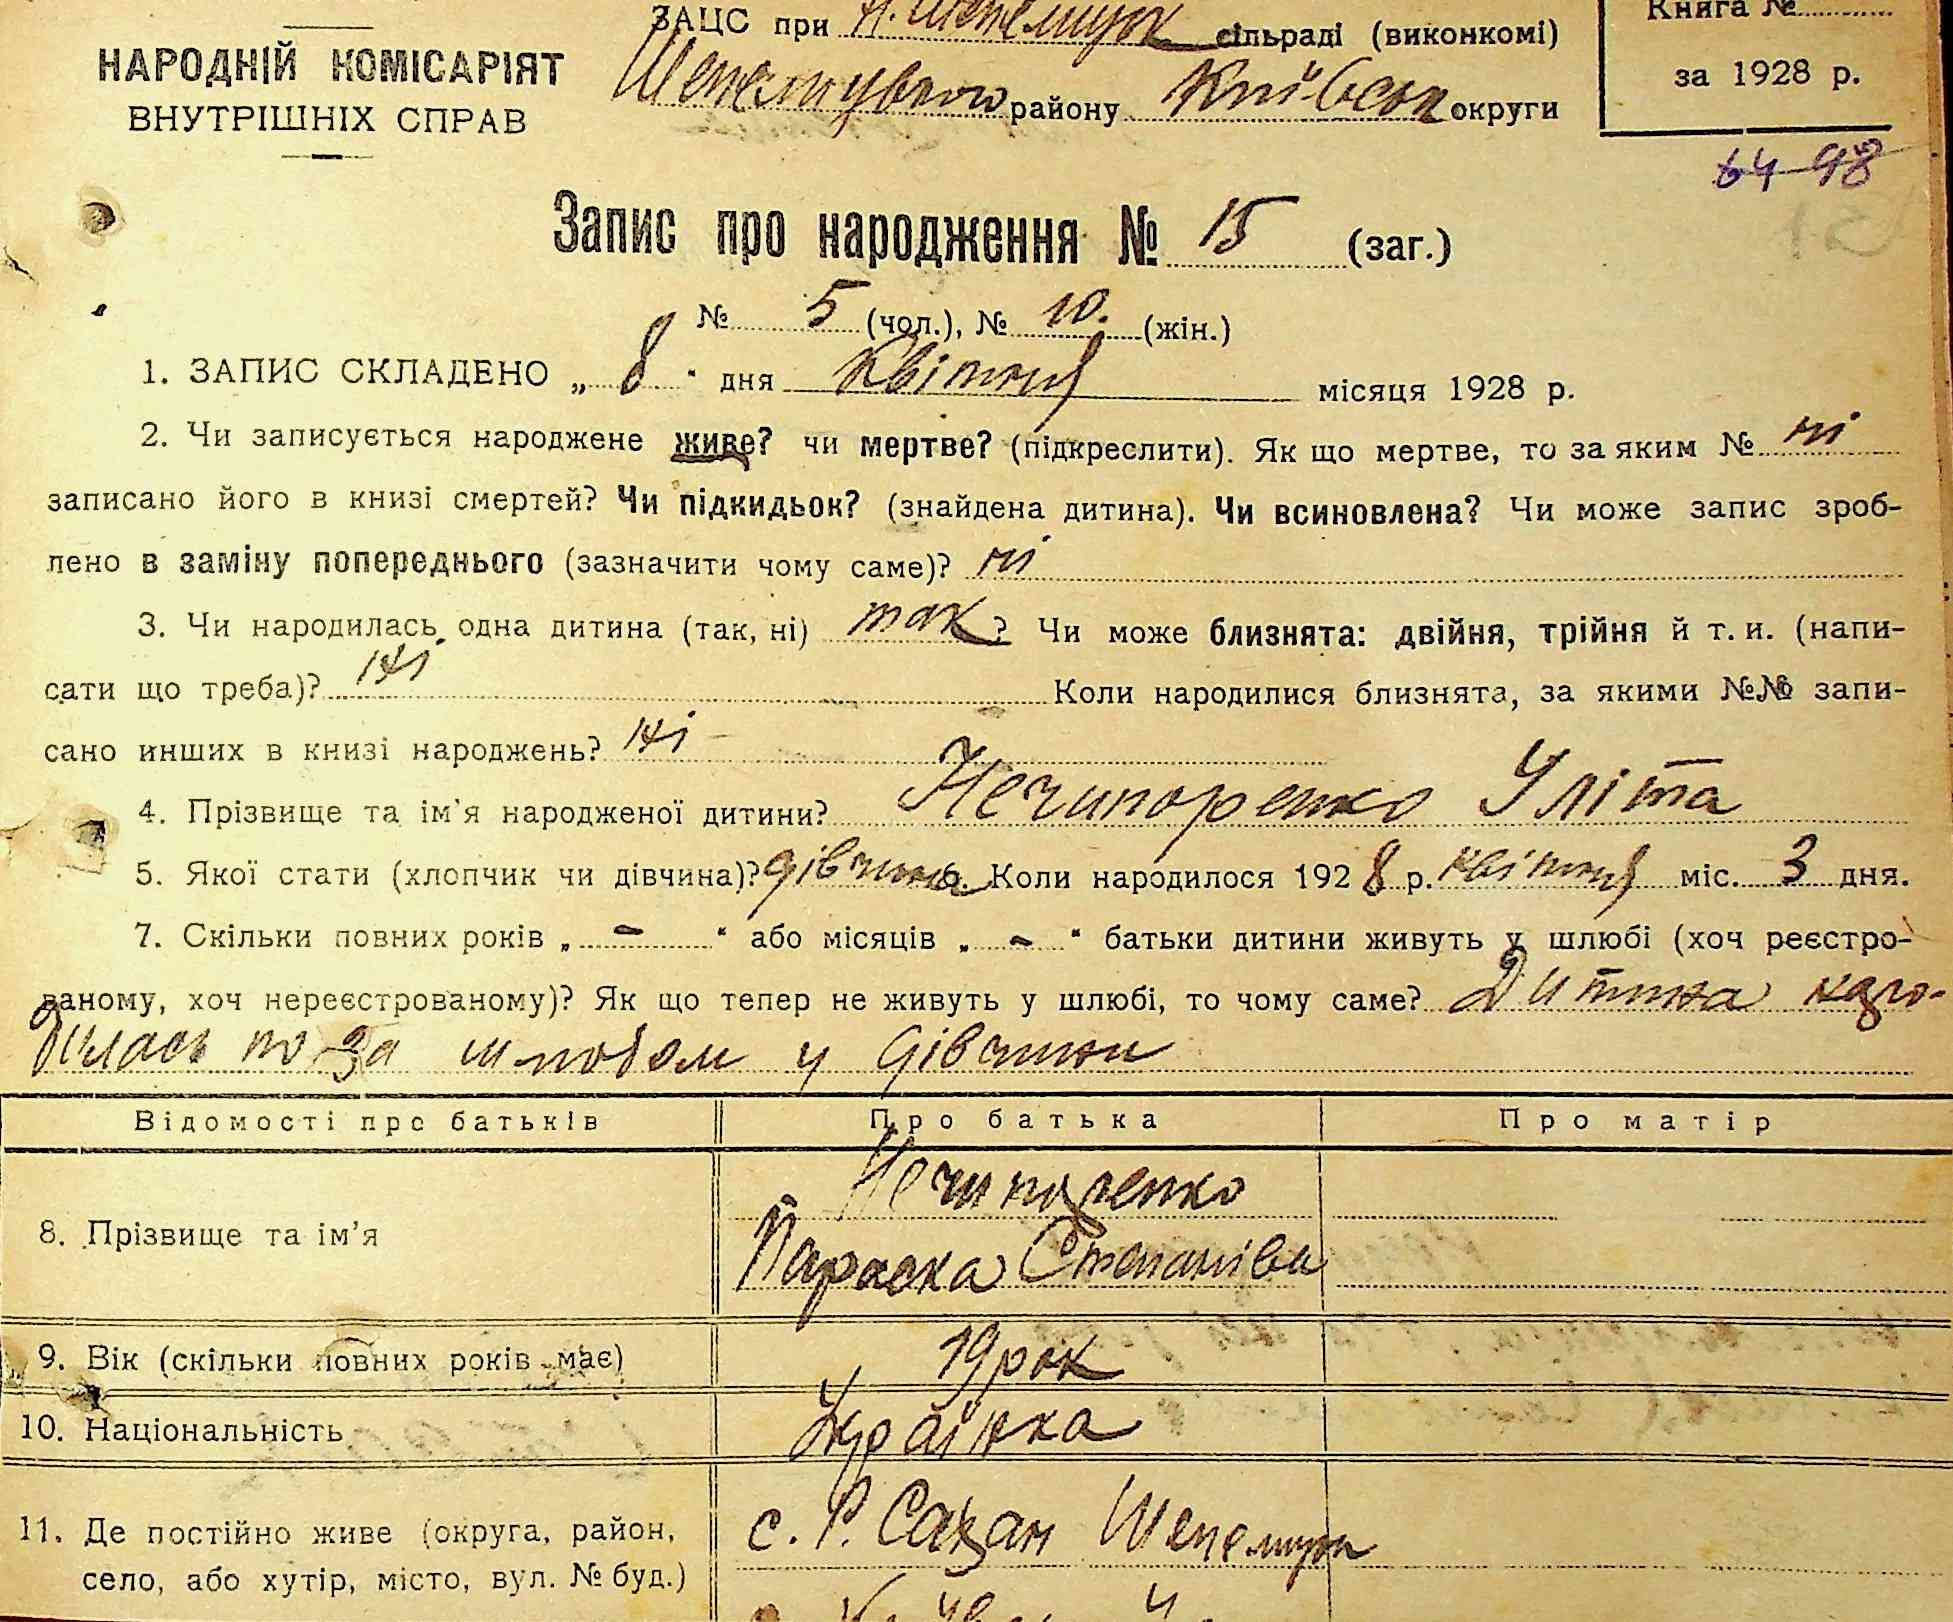 ЗАЦС при Н. Шепелицьк сільраді (виконкомі)
Книга №
НАРОДНІЙ КОМІСАРІЯТ
району Київськ округи
за 1928 р.
ВНУТРІШНІХ СПРАВ
64 98
Запис про народження № 15 (заг.)
№ 5 (чол.), № 10. (жін.)
1. ЗАПИС СКЛАДЕНО „ 8 " дня Квітня місяця 1928 р.
2. Чи записується народжене живе? чи мертве? (підкреслити). Як що мертве, то за яким № ні
записано його в книзі смертей? Чи підкидьок? (знайдена дитина). Чи всиновлена? Чи може запис зроб-
лено в заміну попереднього (зазначити чому саме)? ні
3. Чи народилась одна дитина (так, ні) так ? Чи може близнята: двійня, трійня й т. и. (напи-
сати що треба)? ні Коли народилися близнята, за якими №№ запи-
сано инших в книзі народжень? ні
4. Прізвище та ім'я народженої дитини? Нечипоренко Уліта
5. Якої стати (хлопчик чи дівчина)? дівчина 6. Коли народилося 1928 р. квітня міс. 3 дня.
7. Скільки повних років „ - " або місяців „ - " батьки дитини живуть у шлюбі (хоч реєстро-
ваному, хоч нереєстрованому)? Як що тепер не живуть у шлюбі, то чому саме? Дитина наро-
дилась по за шлюбом у дівчини
Відомості про батьків Про батька Про матір
Нечипоренко
8. Прізвище та ім'я
Параска Степанівн
9. Вік (скільки повних років має) 19 рок
10. Національність Українка
с. Р. Сазан
11. Де постійно живе (округа, район,
село, або хутір, місто, вул. № буд.)